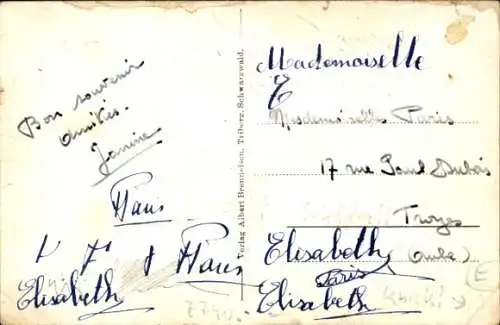 Bon souvenir
Amitiés.
Janine
Hans
Hans
Elisabeth
Verlag Albert Brennelsen, Triberg, Schwarzwald.
Mademoiselle
E
Mademoiselle Paris
17 rue Paul Dubois
Troyes
(Aube)
Elisabeth
Paris
Elisabeth